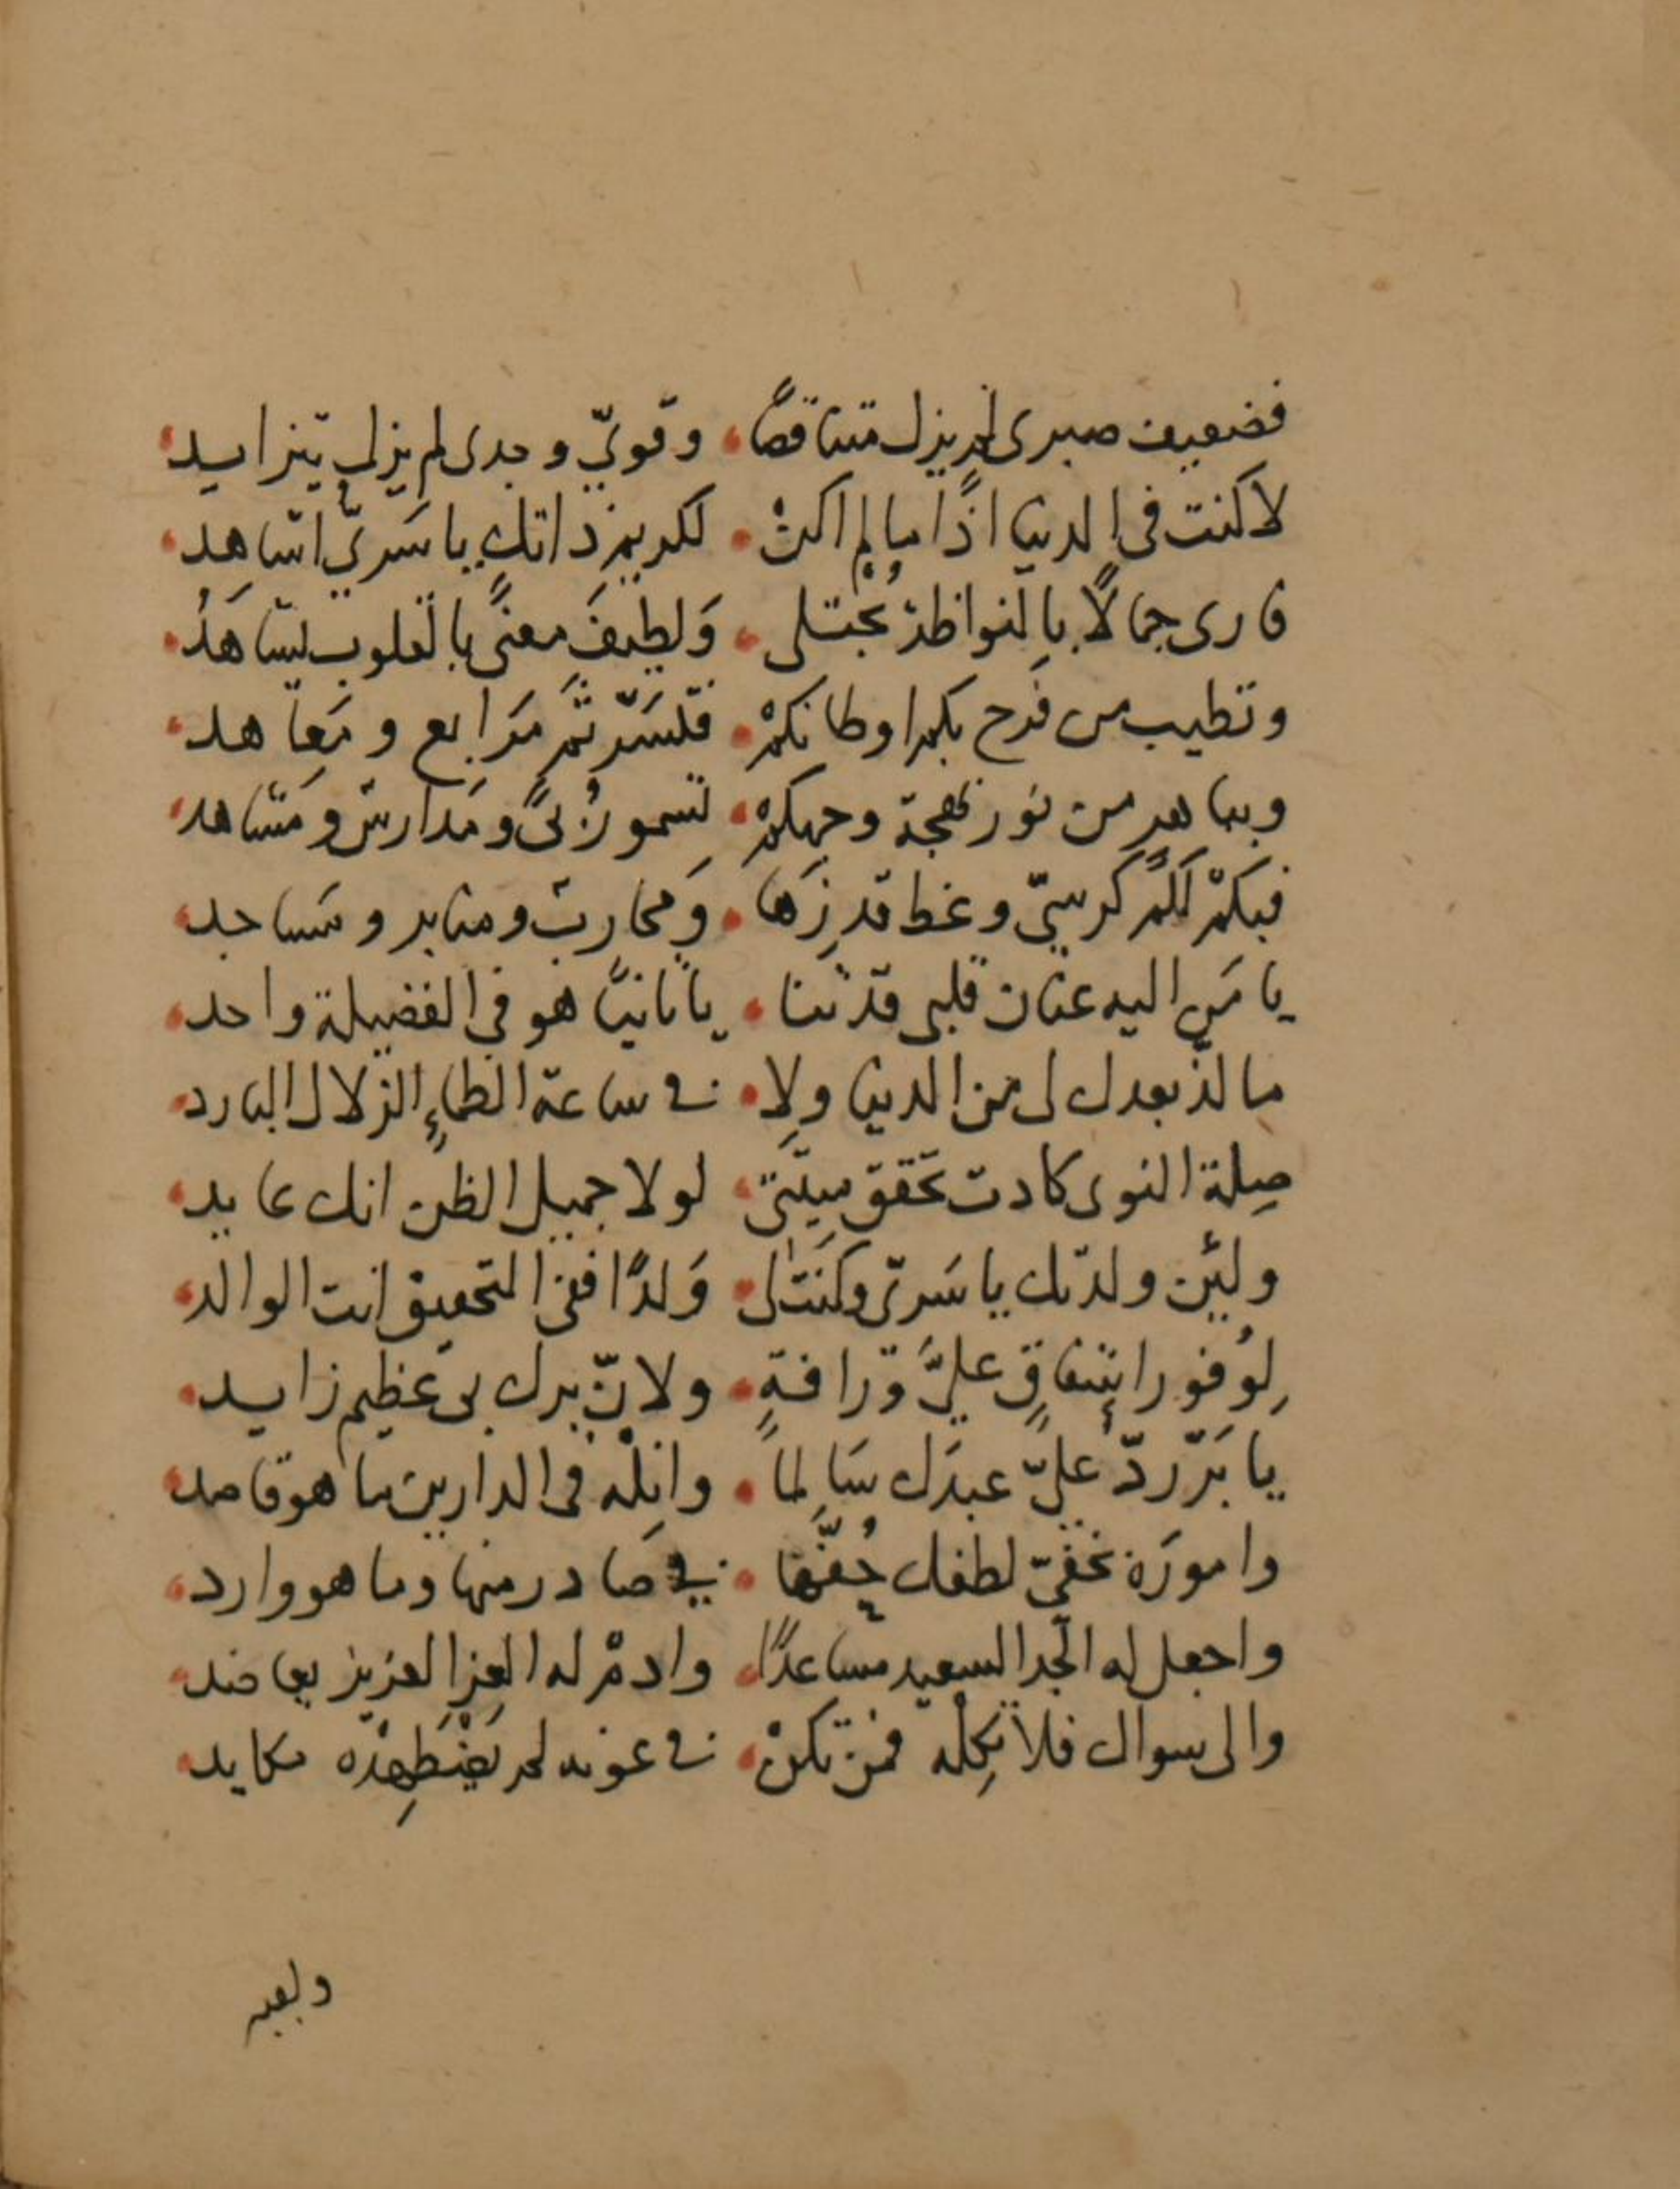 فضعيف صبرى لم يزل متناقصًا، وقويّ وجدى لم يزل يتزايد،
لا كنت فى الدنيا اذًا ما لم اكنْ، لكريم ذاتك يا سَرىّ اشاهد،
فارى جمالًا بالنواظر يُجْتلى، وَلطيفَ معنىً بالقلوب يشاهَدُ،
وتطيب من فرح بكم اوطانكمْ، فلتسَرّ ثَمّ مَرابع ومَعاهد،
وبباهر من نور بهجة وجهكمْ، تسمو رُبىً ومَدارسٌ ومَشاهد،
فبكمْ لكَم كرسيّ وعظ قد زَها، وَمحاربٌ ومنابر ومساجد،
يا مَن اليه عنان قلبى قد ثنا، يا ثانيًا هو فى الفضيلة واحد،
ما لذّ بعدك لى من الدنيا ولا، فى ساعة الظماءِ الزلال البارد،
صِلة النوى كادت تحَقق ميتتى، لولا جميل الظن انك عايد،
ولئِن ولدتك يا سَرىّ وكنتَ لى، وَلدًا ففى التحقيق انت الوالد،
لِوُفور اشفاقٍ علىَّ ورافةٍ، ولانّ برك بى عظيم زايد،
يا بَرّ ردّ علىّ عبدَك سَالمًا، وانِلْه فى الدارين ما هو قاصد
وامورَه بخفىّ لطفك حُفّها، فى صَادر منها وما هو وارد،
واجعل له الجد السعيد مساعدًا، وادمْ له العز العزيز يعاضد،
والى سواك فلا تكِلْه فمن تكنْ، فى عونه لم تضْطَهِدْه مكايد،